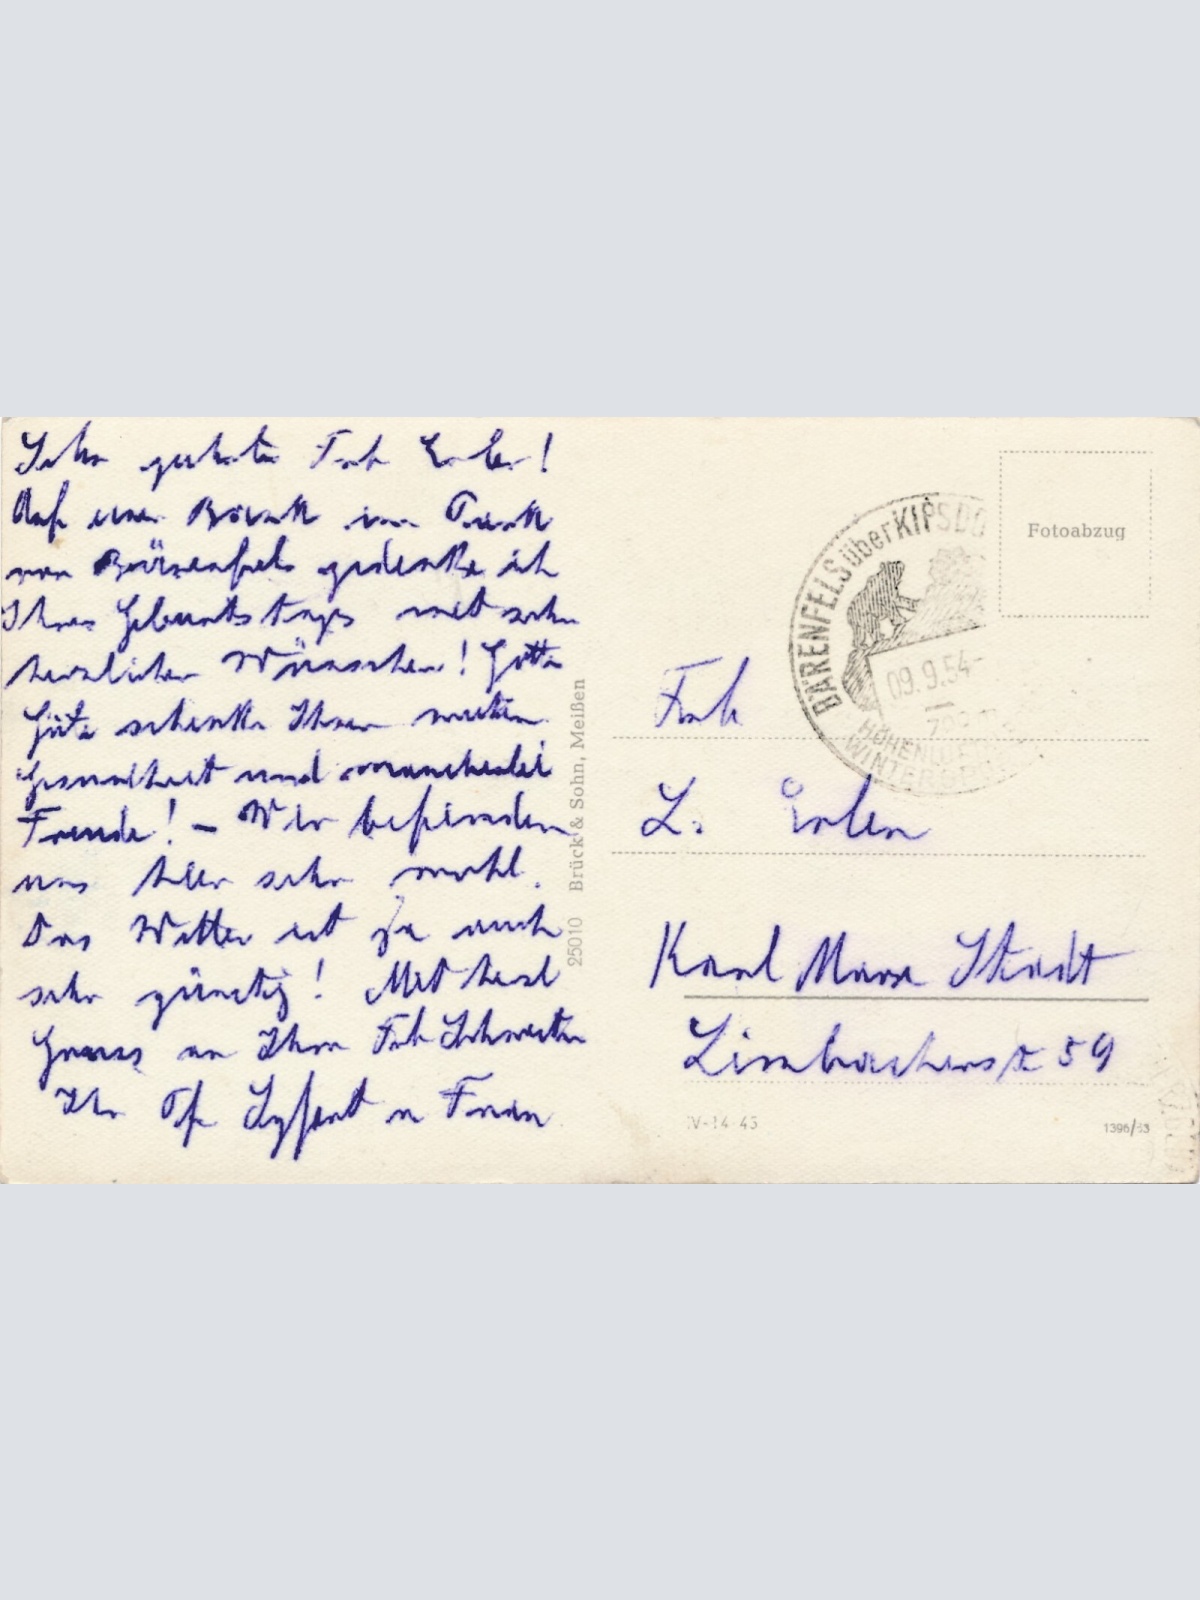 Sehr geehrte Frl. Erler!
Auf einer Bank im Park
von Bärenfels gedenke ich
Ihres Geburtstags mit sehr
herzlichen Wünschen! Gottes
Güte schenke Ihnen weiter
Gesundheit und mancherlei
Freude! – Wir befinden
uns hier sehr wohl.
Das Wetter ist ja auch
sehr günstig! Mit herzl
Gruss an Ihre Frl Schwester
Ihr u Frau
25010 Brück & Sohn, Meißen
BÄRENFELS über KIPSDO
09.9.54-
HÖHENLUFT
WINTERSPO
Fotoabzug
Frl
L. Erler
Karl Marx Stadt
Limbacherstr 59
IV-14-45
1396/53